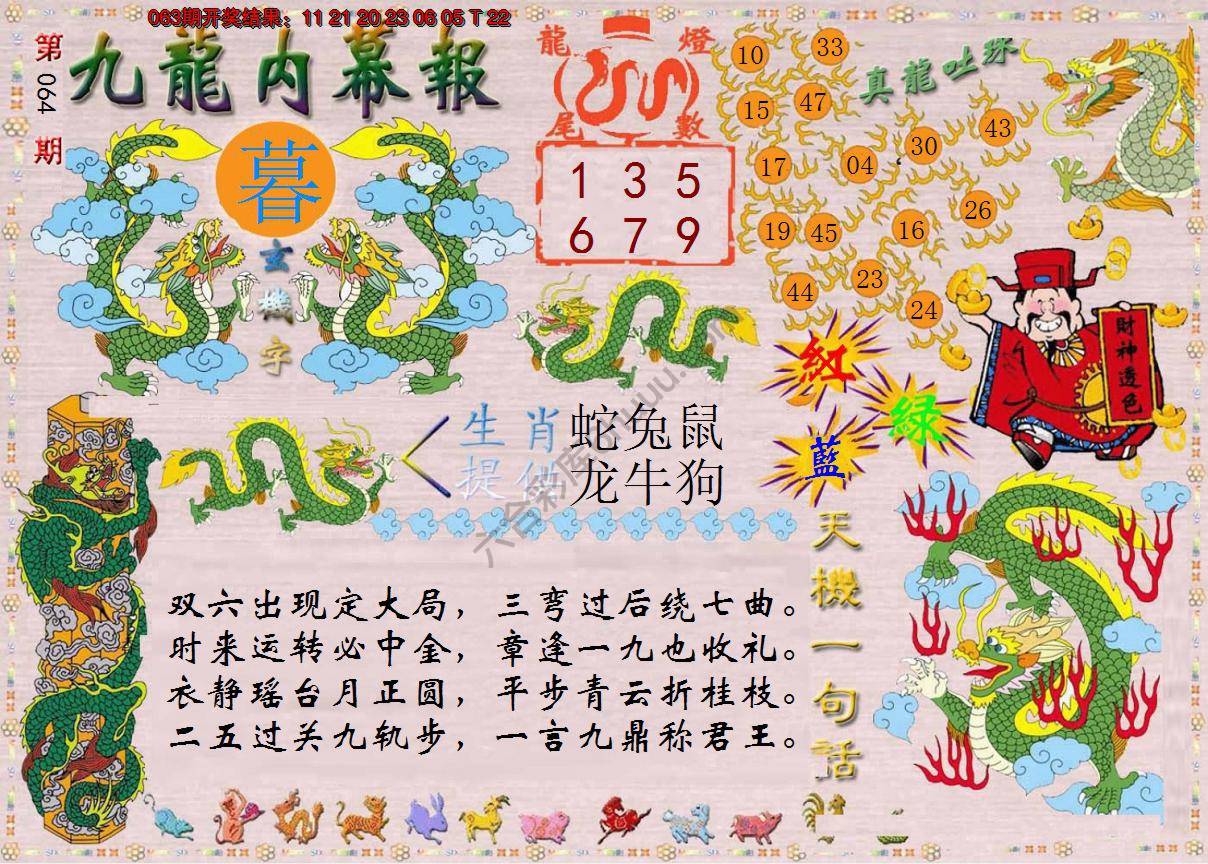 063期开奖结果：11 21 20 23 06 05 T 22
第
064
期
九龍内幕報
暮
玄
機
字
龍 燈
尾 數
1 3 5
6 7 9
真龍吐珠
10 33
15 47
43
30
17 04
26
19 45 16
23
44
24
財神透色
紅
綠
藍
生肖
蛇兔鼠
提供
龙牛狗
天機一句话
双六出现定大局，三弯过后绕七曲。
时来运转必中金，章逢一九也收礼。
衣静瑶台月正圆，平步青云折桂枝。
二五过关九轨步，一言九鼎称君王。